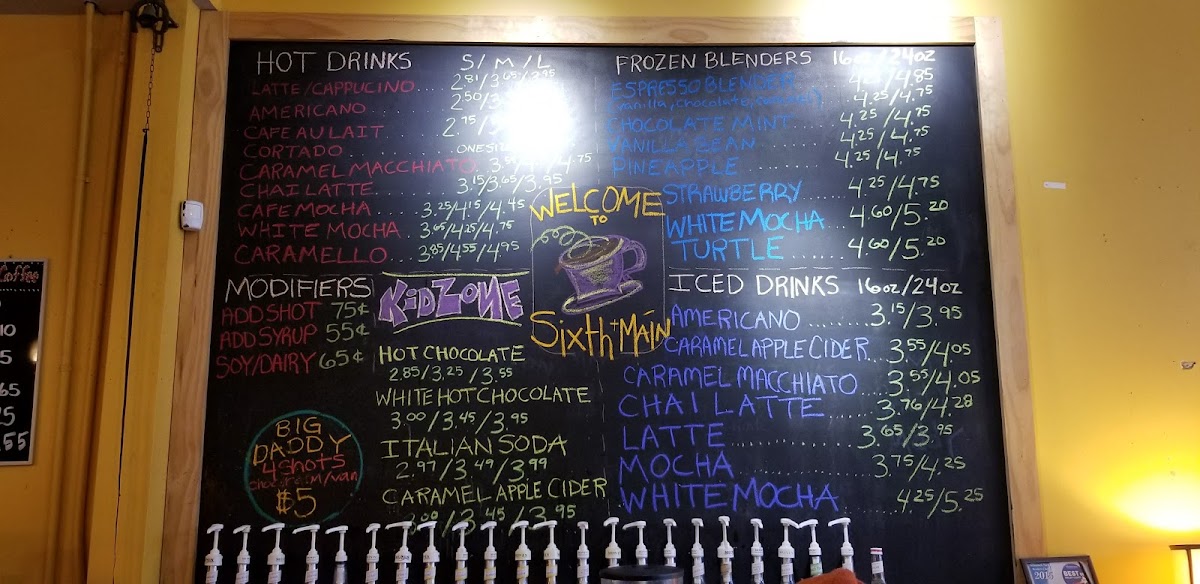 HOT DRINKS S/M/L
LATTE/CAPPUCINO 2.81/3.65/3.95
AMERICANO 2.50/
CAFE AU LAIT 2.75/
CORTADO ONE SIZE
CARAMEL MACCHIATO 3.55/ /4.75
CHAI LATTE 3.15/3.65/3.95
CAFE MOCHA 3.25/4.15/4.45
WHITE MOCHA 3.65/4.25/4.75
CARAMELLO 3.85/4.55/4.95
MODIFIERS
ADD SHOT 75¢
ADD SYRUP 55¢
SOY/DAIRY 65¢
BIG
DADDY
4 SHOTS
$5
KIDZONE
HOT CHOCOLATE
2.85/3.25/3.55
WHITE HOT CHOCOLATE
3.00/3.45/3.95
ITALIAN SODA
2.97/3.49/3.99
CARAMEL APPLE CIDER
3.00/3.45/3.95
WELCOME
TO
Sixth+MAIN
FROZEN BLENDERS 16oz/24oz
ESPRESSO BLENDER 4.25/4.85
(vanilla, chocolate, caramel) 4.25/4.75
CHOCOLATE MINT 4.25/4.75
VANILLA BEAN 4.25/4.75
PINEAPPLE 4.25/4.75
STRAWBERRY 4.25/4.75
WHITE MOCHA 4.60/5.20
TURTLE 4.60/5.20
ICED DRINKS 16oz/24oz
AMERICANO 3.15/3.95
CARAMEL APPLE CIDER 3.55/4.05
CARAMEL MACCHIATO 3.55/4.05
CHAI LATTE 3.76/4.28
LATTE 3.65/3.95
MOCHA 3.75/4.25
WHITE MOCHA 4.25/5.25
Coffee
10
5
65
25
55
BEST